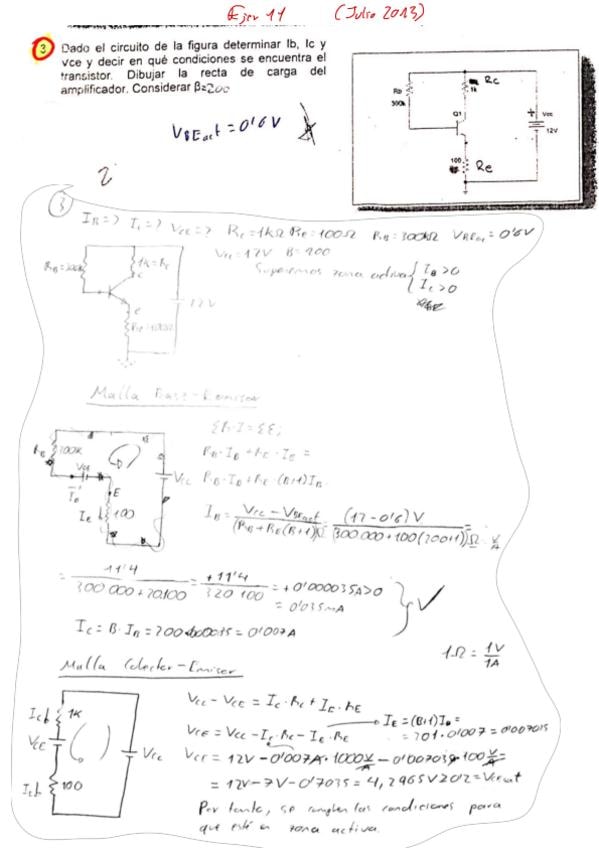 Ejer 11 (Julio 2013)
3 Dado el circuito de la figura determinar Ib, Ic y
vce y decir en qué condiciones se encuentra el
transistor. Dibujar la recta de carga del
amplificador. Considerar β=200
VBEact = 0'6V
Rb
300k
Rc
1k
Q1
+ Vcc
12V
100 Re
2
3 IB=>? IC=>? VCE=>? RC=1kΩ RE=100Ω RB=300kΩ VBEac=0'6V
VCC=12V B=200
Suponemos zona activa { IB>0
IC>0
RB=300k
1k=RC
C
e
RE=100Ω
12V
Malla Base-Emisor
ΣR·I=ΣE;
RB·IB+RE·IE=
RB·IB+RE·(B+1)IB
RB 300k
IB
E
IE 100
VCC
IB = VCC - VBEact / (RB+RE(B+1))Ω = (12-0'6)V / (300.000+100(200+1))Ω =
= 11'4 / 300 000+20.100 = +11'4 / 320 100 = +0'000035A>0
= 0'035mA
IC = B·IB = 200·0'00035 = 0'007A
1Ω = 1V / 1A
Malla Colector-Emisor
1k
VCE
100
VCC
VCC - VCE = IC·RC + IE·RE
VCE = VCC - IC·RC - IE·RE
IE = (B+1)IB =
= 201·0'007 = 0'007035
VCE = 12V - 0'007A·1000 V/A - 0'007035·100 V/A =
= 12V - 7V - 0'7035 = 4,2965V ≥ 0'2 = VCEsat
Por tanto, se cumplen las condiciones para
que esté en zona activa.